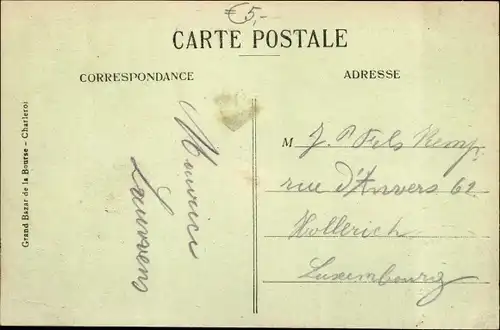 €5,-
CARTE POSTALE
CORRESPONDANCE
ADRESSE
Grand Bazar de la Bourse - Charleroi
Maurice
M J. P. Fels Kemp.
rue d'Anvers 62
Hollerich
Luxembourg